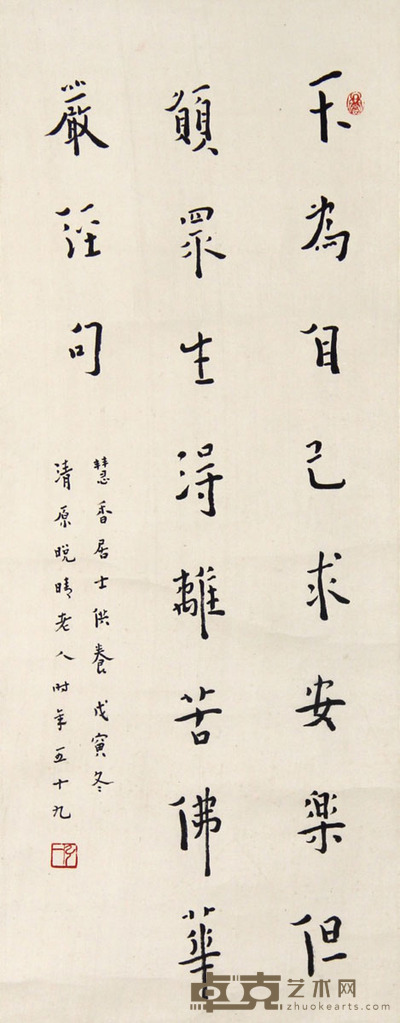 不為自己求安樂但
願眾生得離苦佛華
嚴經句
慧香居士供養戊寅冬
清原晚晴老人時年五十九
卓克艺术网
zhuokearts.com